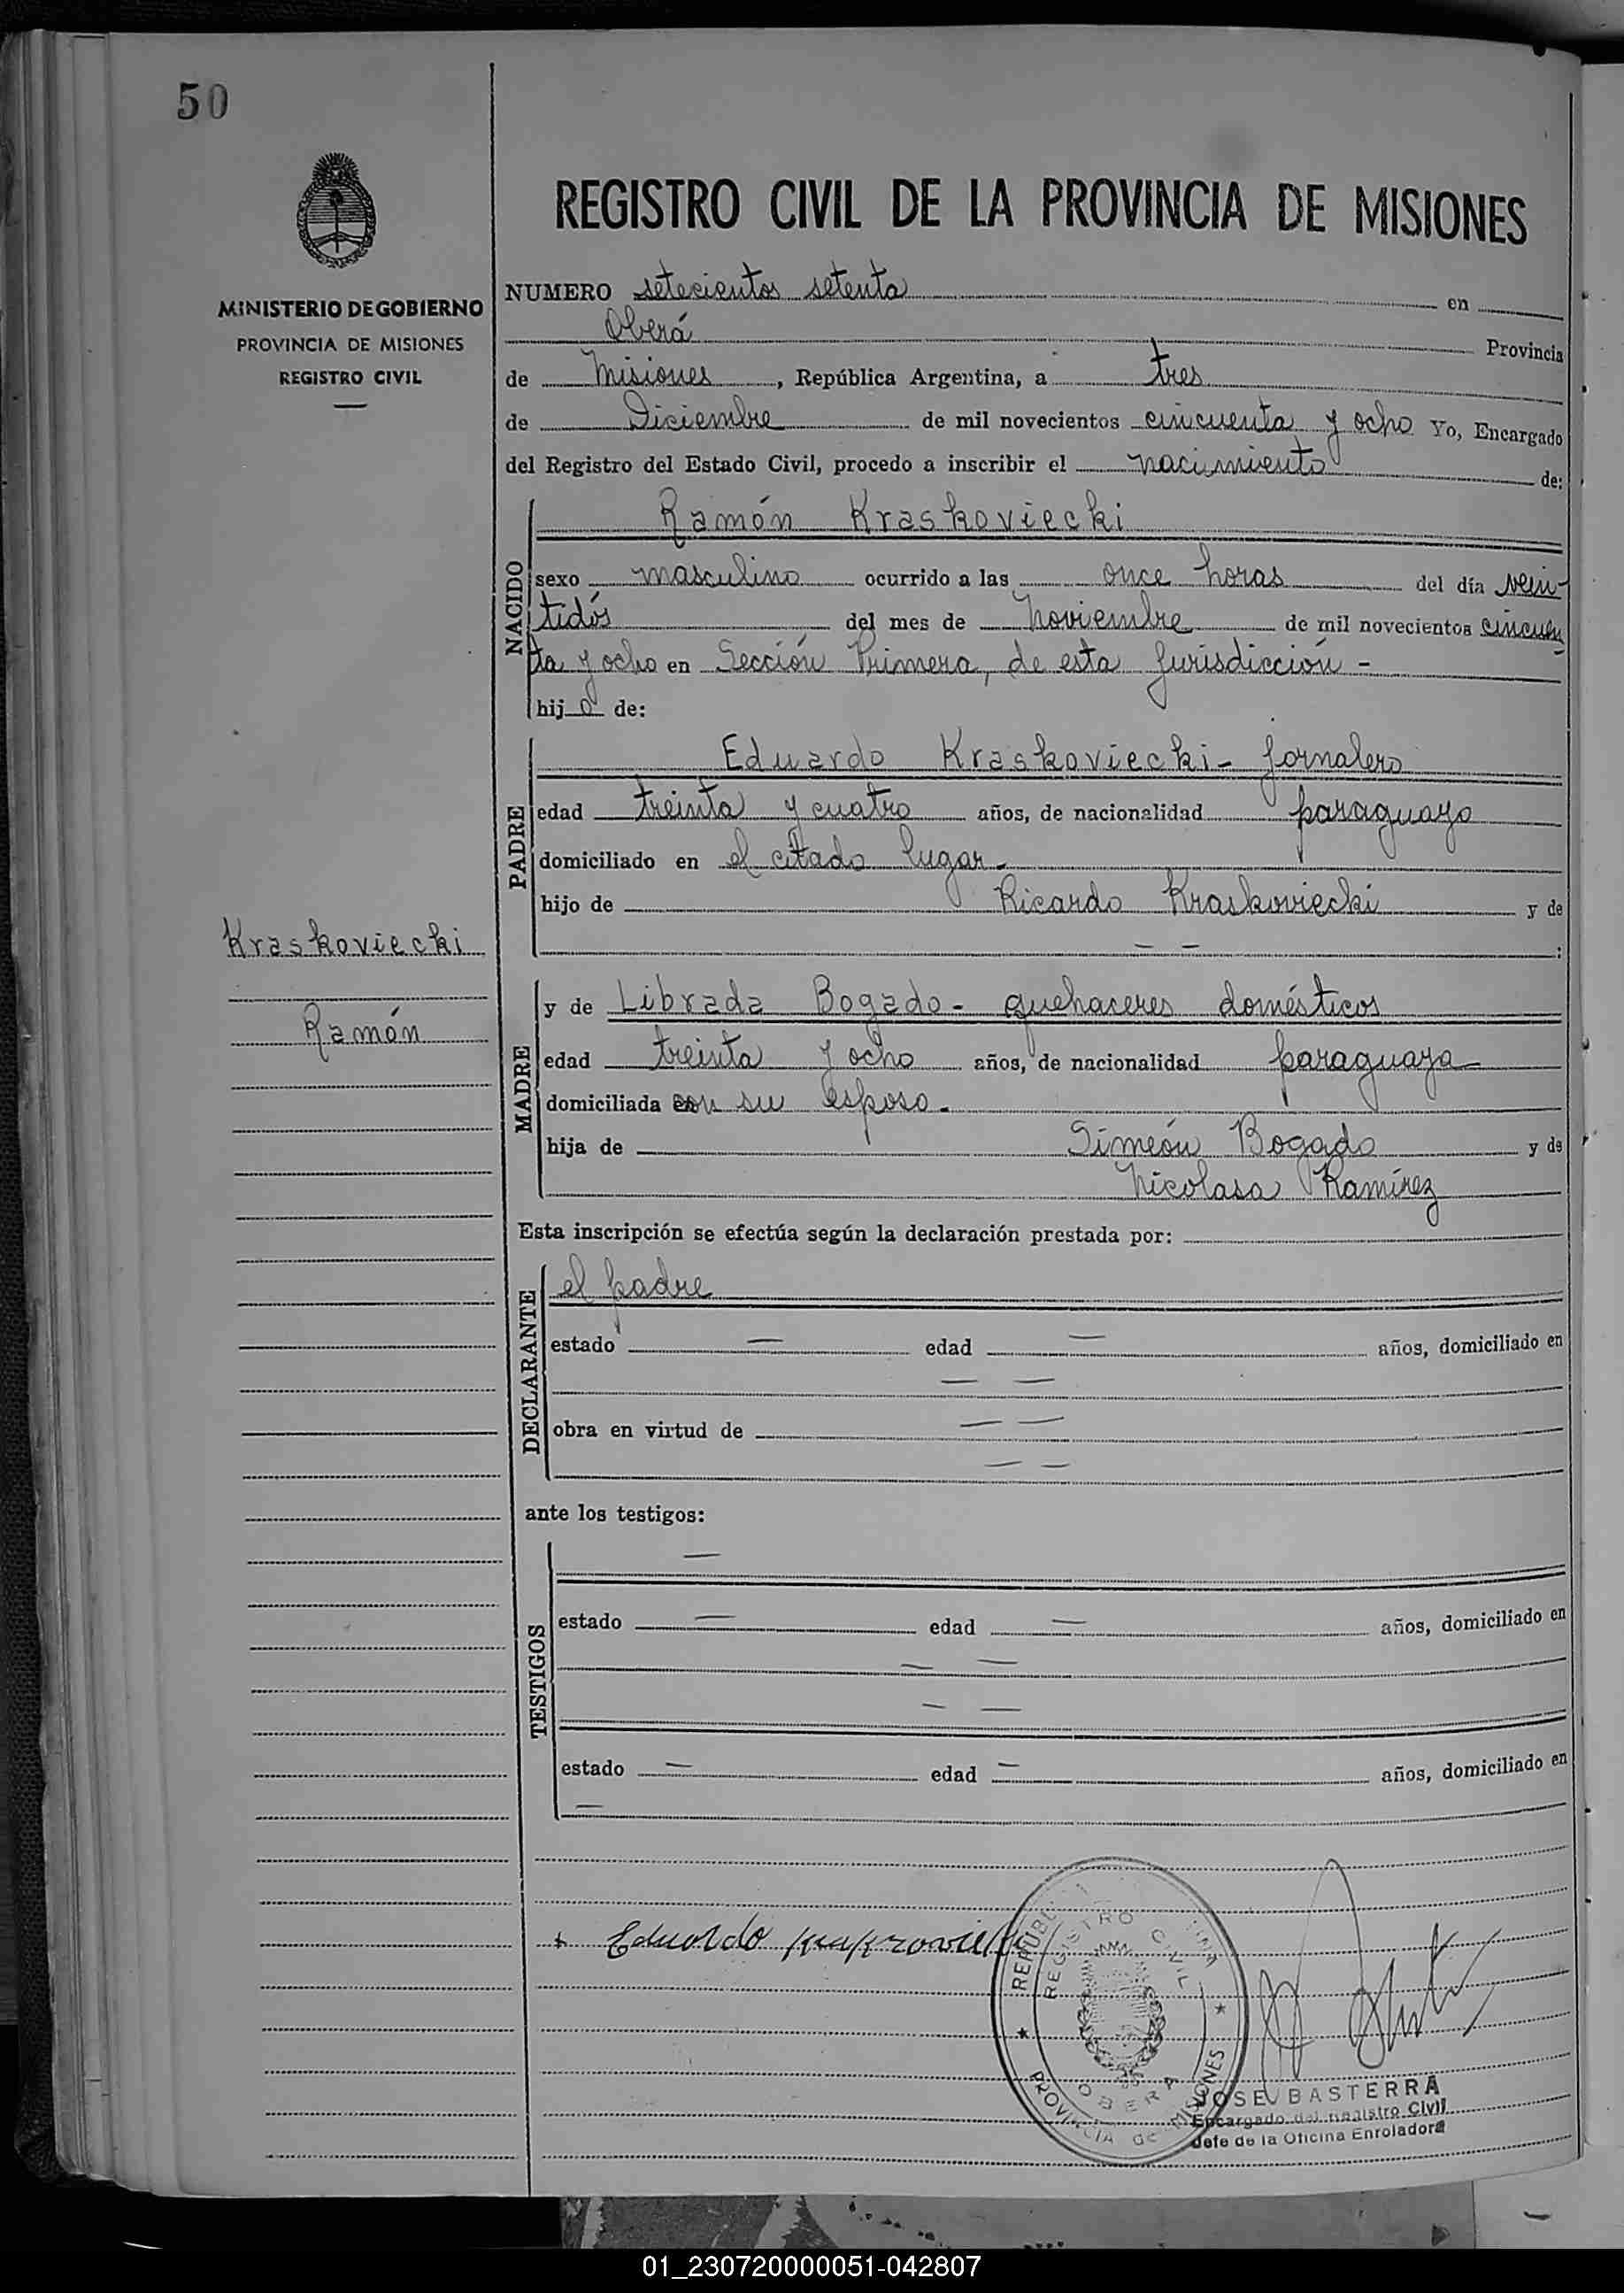 50
MINISTERIO DE GOBIERNO
PROVINCIA DE MISIONES
REGISTRO CIVIL
REGISTRO CIVIL DE LA PROVINCIA DE MISIONES
NUMERO setecientos setenta en
Oberá Provincia
de Misiones, República Argentina, a tres
de Diciembre de mil novecientos cincuenta y ocho Yo, Encargado
del Registro del Estado Civil, procedo a inscribir el nacimiento de:
NACIDO
Ramón Kraskoviecki
sexo masculino ocurrido a las once horas del día vein-
tidós del mes de Noviembre de mil novecientos cincuen
ta y ocho en Sección Primera, de esta Jurisdicción -
hijo de:
PADRE
Eduardo Kraskoviecki - Jornalero
edad treinta y cuatro años, de nacionalidad paraguayo
domiciliado en el citado lugar.-
hijo de Ricardo Kraskoviecki y de
— — :
Kraskoviecki
Ramón
MADRE
y de Librada Bogado - quehaceres domésticos
edad treinta y ocho años, de nacionalidad paraguaya
domiciliada con su esposo.
hija de Simeón Bogado y de
Nicolasa Ramírez
Esta inscripción se efectúa según la declaración prestada por:
DECLARANTE
el padre
estado — edad — años, domiciliado en
— —
obra en virtud de — —
— —
ante los testigos:
TESTIGOS
—
estado — edad — años, domiciliado en
— —
— —
estado — edad — años, domiciliado en
—
+ Eduardo
REGISTRO CIVIL
OBERA
PROVINCIA de MISIONES
JOSE BASTERRA
Encargado del Registro Civil
Jefe de la Oficina Enroladora
01_230720000051-042807